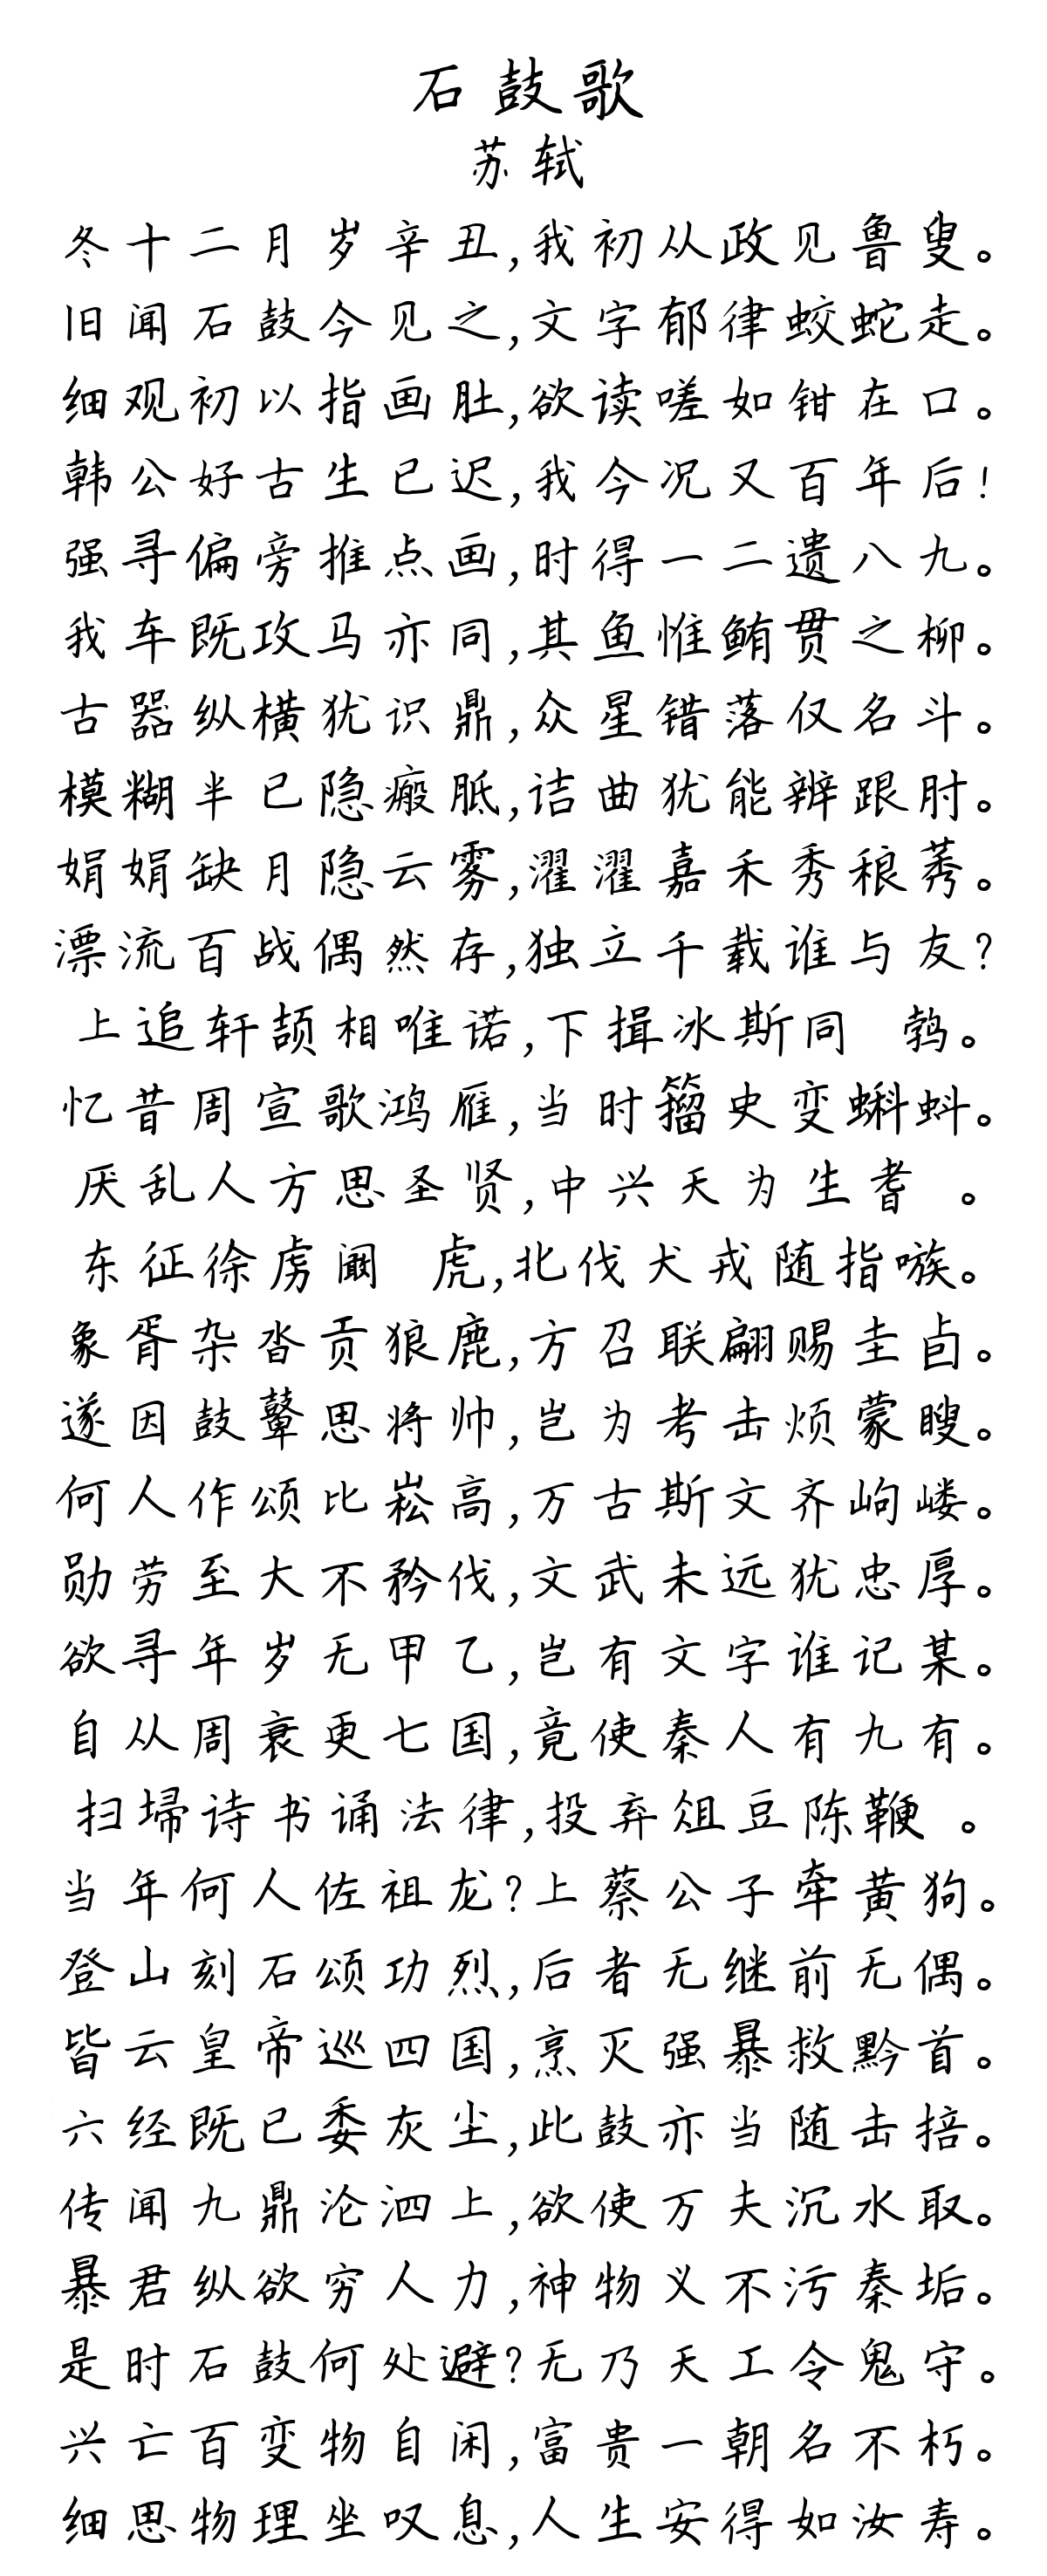 石鼓歌
苏轼
冬十二月岁辛丑,我初从政见鲁叟。
旧闻石鼓今见之,文字郁律蛟蛇走。
细观初以指画肚,欲读嗟如钳在口。
韩公好古生已迟,我今况又百年后!
强寻偏旁推点画,时得一二遗八九。
我车既攻马亦同,其鱼惟鲔贯之柳。
古器纵横犹识鼎,众星错落仅名斗。
模糊半已隐瘢胝,诘曲犹能辨跟肘。
娟娟缺月隐云雾,濯濯嘉禾秀稂莠。
漂流百战偶然存,独立千载谁与友?
上追轩颉相唯诺,下揖冰斯同 鹁。
忆昔周宣歌鸿雁,当时籀史变蝌蚪。
厌乱人方思圣贤,中兴天为生耆 。
东征徐虏阚 虎,北伐犬戎随指嗾。
象胥杂沓贡狼鹿,方召联翩赐圭卣。
遂因鼓鼙思将帅,岂为考击烦蒙瞍。
何人作颂比崧高,万古斯文齐岣嵝。
勋劳至大不矜伐,文武未远犹忠厚。
欲寻年岁无甲乙,岂有文字谁记某。
自从周衰更七国,竟使秦人有九有。
扫埽诗书诵法律,投弃俎豆陈鞭 。
当年何人佐祖龙?上蔡公子牵黄狗。
登山刻石颂功烈,后者无继前无偶。
皆云皇帝巡四国,烹灭强暴救黔首。
六经既已委灰尘,此鼓亦当随击掊。
传闻九鼎沦泗上,欲使万夫沉水取。
暴君纵欲穷人力,神物义不污秦垢。
是时石鼓何处避?无乃天工令鬼守。
兴亡百变物自闲,富贵一朝名不朽。
细思物理坐叹息,人生安得如汝寿。